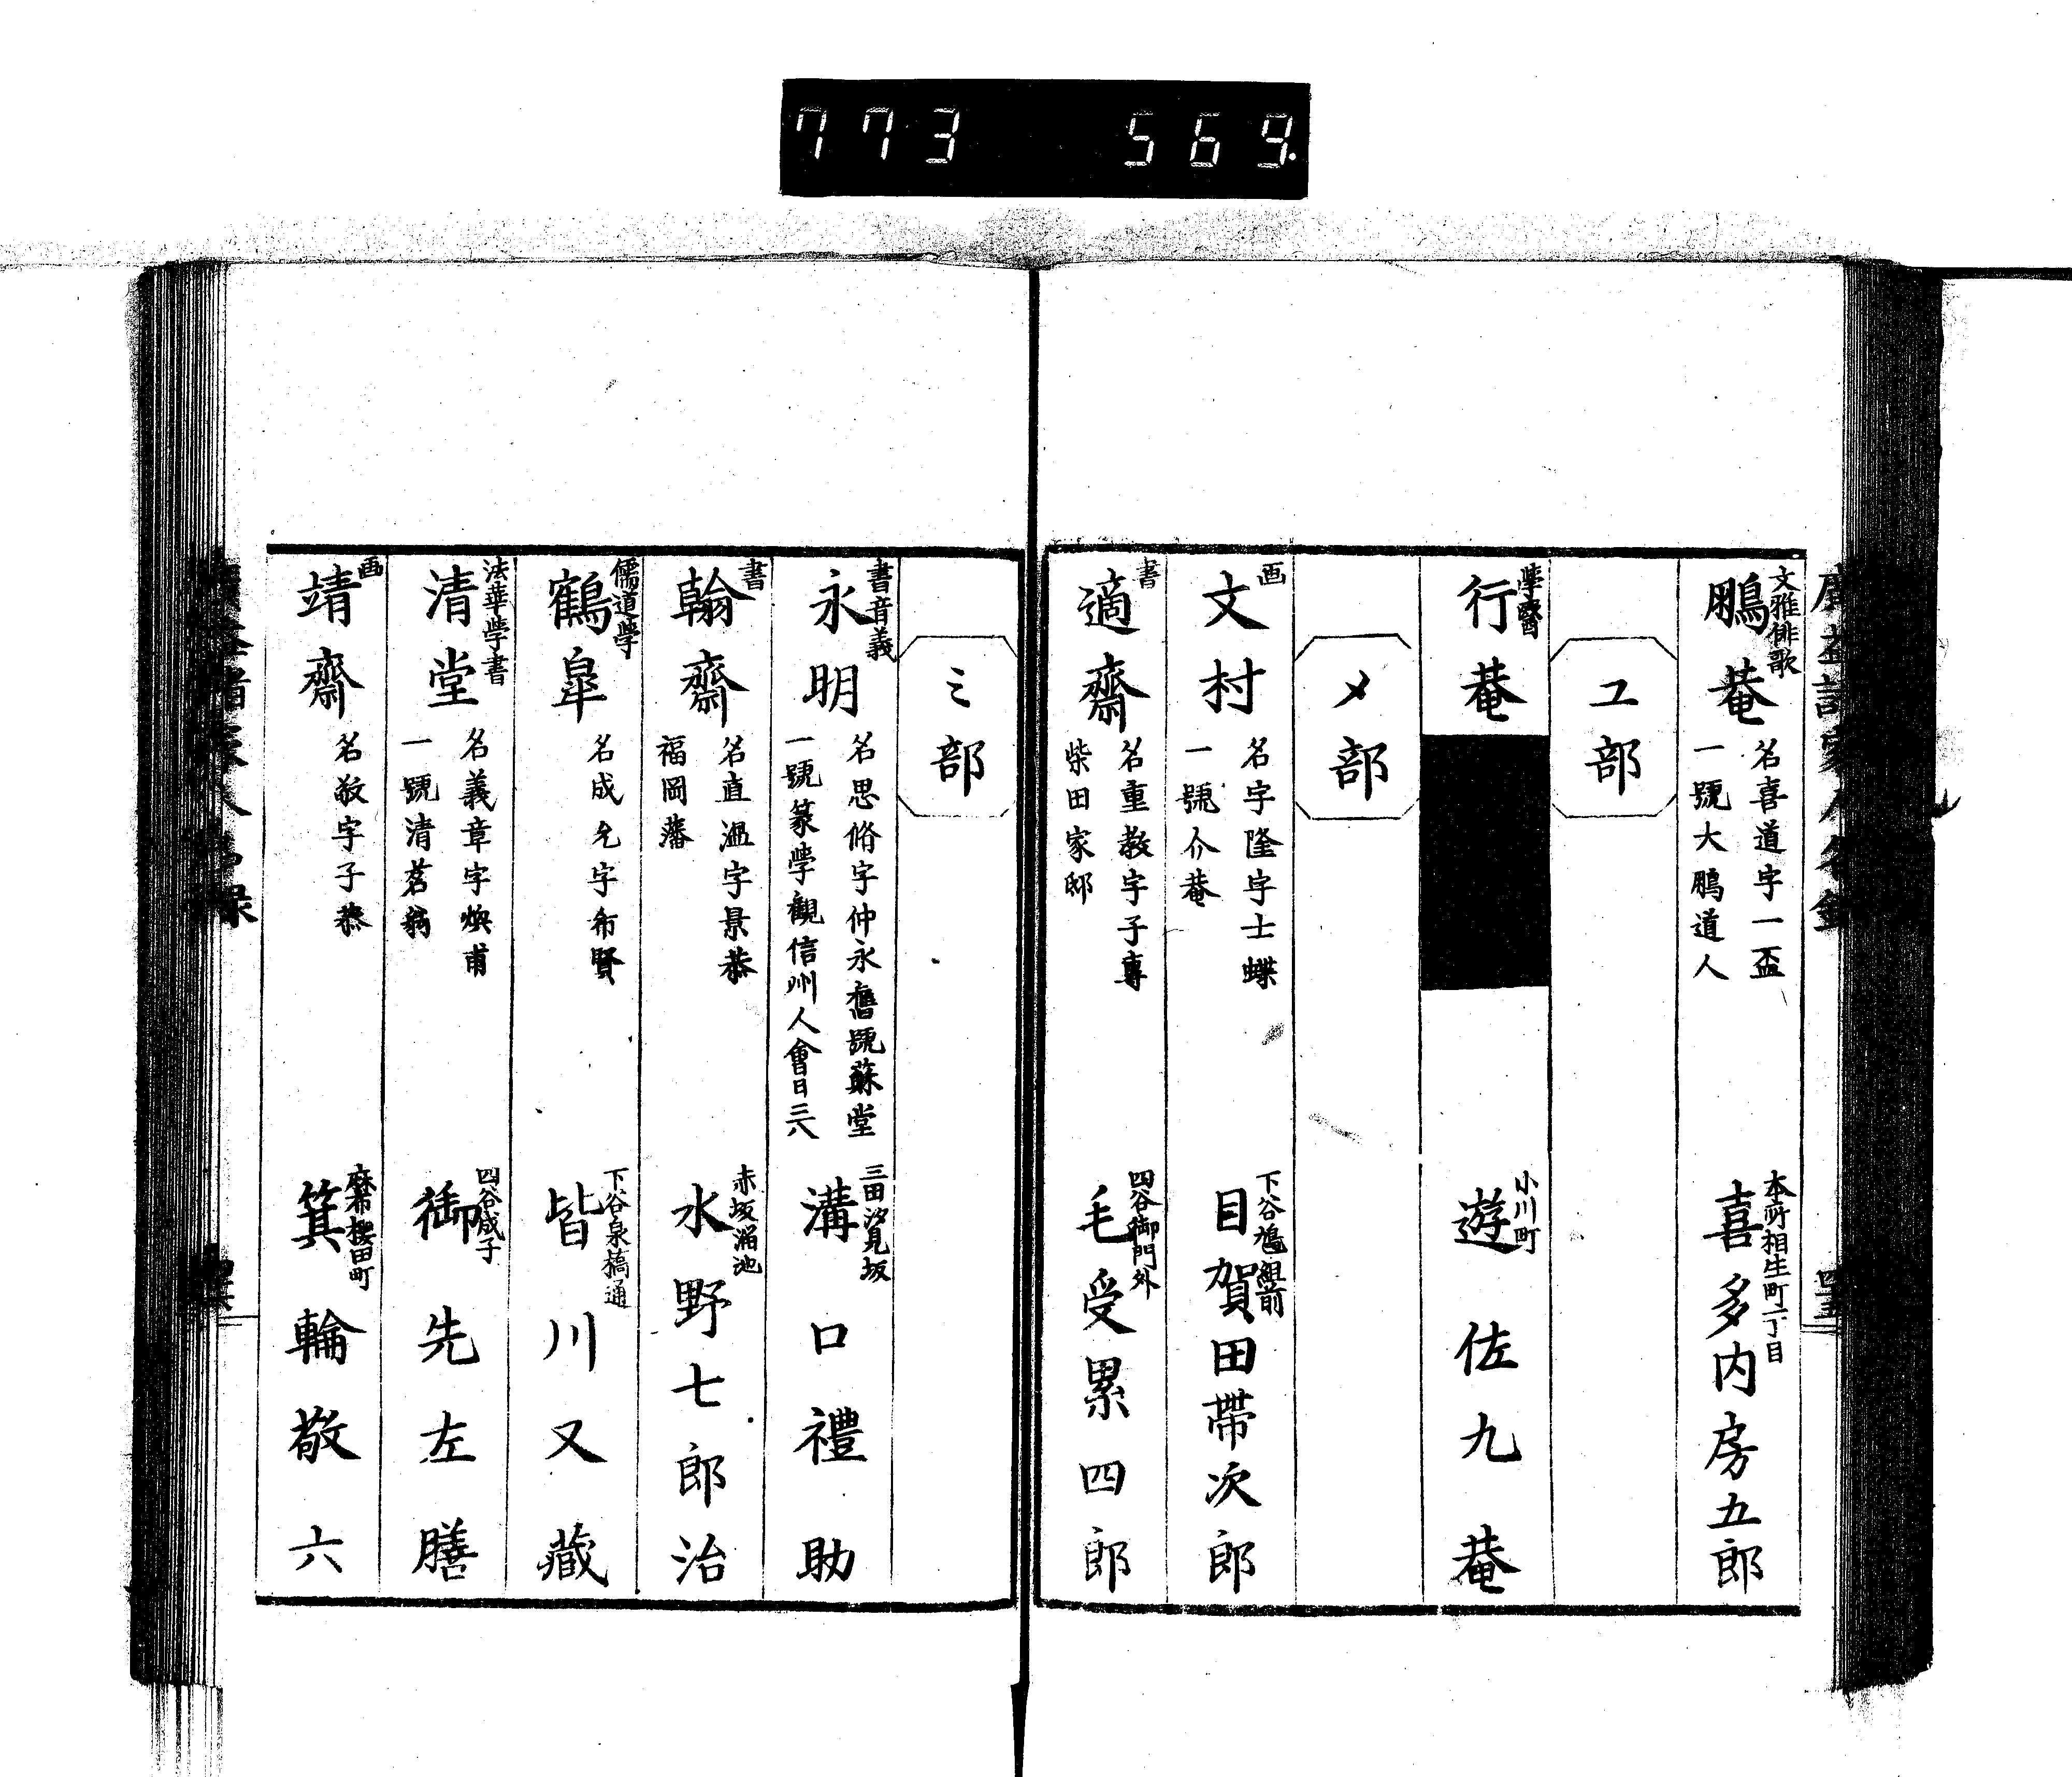 773 569.
文雅俳歌
鵬菴
名喜道字一盃
一號大鵬道人
本所相生町二丁目
喜多内房五郎
ユ部
學醫
行菴
小川町
遊佐九菴
メ部
画
文村
名字隆字士蝶
一號介菴
下谷鳩組前
目賀田帶次郎
書
適齋
名重教字子專
柴田家邸
四谷御門外
毛受累四郎
ミ部
書音義
永明
名思脩字仲永舊號蘇堂
一號篆學觀信州人會日三六
三田汐見坂
溝口禮助
書
翰齋
名直溫字景恭
福岡藩
赤坂溜池
水野七郎治
儒道學
鶴皐
名成允字布賢
下谷泉橋通
皆川又藏
法華學書
清堂
名義章字煥甫
一號清茗
四谷成子
御先左膳
画
靖齋
名敬字子恭
麻布櫻田町
箕輪敬六